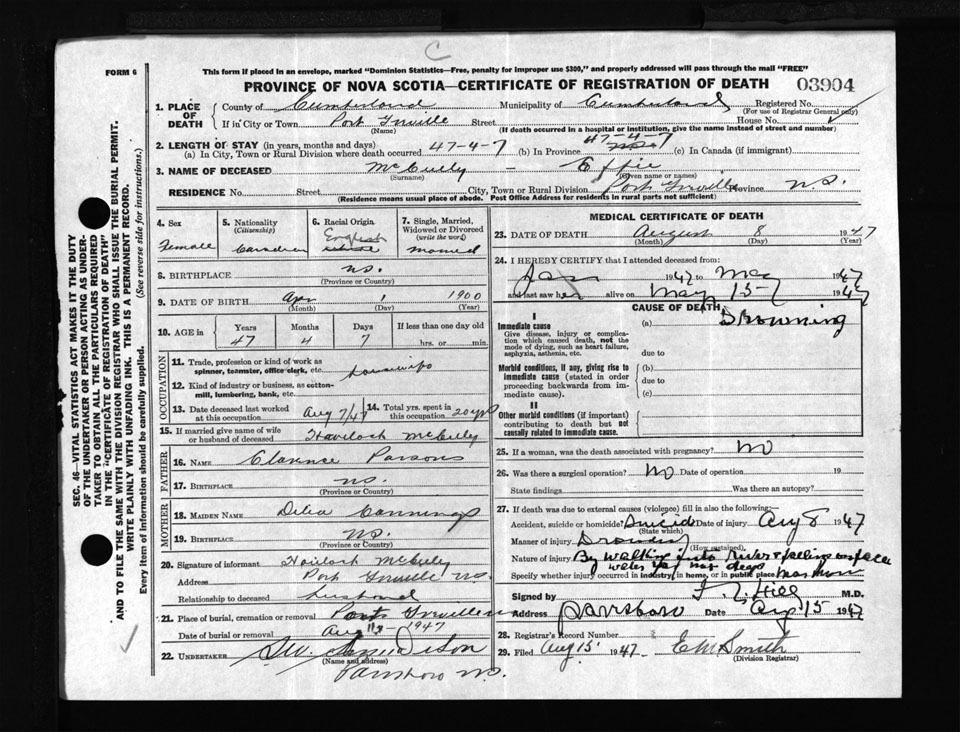 C
FORM 6
This form if placed in an envelope, marked "Dominion Statistics—Free, penalty for improper use $300," and properly addressed will pass through the mail "FREE"
PROVINCE OF NOVA SCOTIA—CERTIFICATE OF REGISTRATION OF DEATH 03904
1. PLACE OF DEATH
County of Cumberland Municipality of Cumberland Registered No.
(For use of Registrar General only)
If in City or Town Port Greville Street House No.
(Name) (If death occurred in a hospital or institution, give the name instead of street and number)
2. LENGTH OF STAY (in years, months and days) 47-4-7
(a) In City, Town or Rural Division where death occurred 47-4-7 (b) In Province (c) In Canada (if immigrant)
3. NAME OF DECEASED McCully - Effie
(Surname) (Given name or names)
RESIDENCE No. Street City, Town or Rural Division Port Greville Province N.S.
(Residence means usual place of abode. Post Office Address for residents in rural parts not sufficient)
4. Sex
Female
5. Nationality
(Citizenship)
Canadian
6. Racial Origin
English
7. Single, Married, Widowed or Divorced
(write the word)
Married
8. BIRTHPLACE N.S.
(Province or Country)
9. DATE OF BIRTH Apr 1 1900
(Month) (Day) (Year)
10. AGE in Years Months Days If less than one day old
47 4 7 hrs. or min.
OCCUPATION
11. Trade, profession or kind of work as spinner, teamster, office clerk, etc. housewife
12. Kind of industry or business, as cotton-mill, lumbering, bank, etc.
13. Date deceased last worked at this occupation Aug 7/47
14. Total yrs. spent in this occupation 20 yrs
15. If married give name of wife or husband of deceased Havelock McCully
FATHER
16. NAME Clarence Parsons
17. BIRTHPLACE N.S.
(Province or Country)
MOTHER
18. MAIDEN NAME Delia Canning
19. BIRTHPLACE N.S.
(Province or Country)
20. Signature of informant Havelock McCully
Address Port Greville N.S.
Relationship to deceased husband
21. Place of burial, cremation or removal Port Greville N.S.
Date of burial or removal Aug 1947
22. UNDERTAKER
(Name and address)
Parrsboro N.S.
MEDICAL CERTIFICATE OF DEATH
23. DATE OF DEATH August 8 1947
(Month) (Day) (Year)
24. I HEREBY CERTIFY that I attended deceased from:
Jan 1947 to May 1947
and last saw her alive on May 15 1947
CAUSE OF DEATH
I
Immediate cause (a) Drowning
Give disease, injury or complication which caused death, not the mode of dying, such as heart failure, asphyxia, asthenia, etc.
due to
Morbid conditions, if any, giving rise to immediate cause (stated in order proceeding backwards from immediate cause).
(b)
due to
(c)
II
Other morbid conditions (if important) contributing to death but not causally related to immediate cause.
25. If a woman, was the death associated with pregnancy? No
26. Was there a surgical operation? No Date of operation 19
State findings Was there an autopsy?
27. If death was due to external causes (violence) fill in also the following:—
Accident, suicide or homicide? Suicide Date of injury Aug 8 1947
(State which)
Manner of injury Drowning
(How sustained)
Nature of injury By walking into river & falling on face
Specify whether injury occurred in industry, in home, or in public place
Signed by Hill M.D.
Address Parrsboro Date Aug 15 1947
28. Registrar's Record Number
29. Filed Aug 15 1947 E M Smith
(Division Registrar)
SEC. 46—VITAL STATISTICS ACT MAKES IT THE DUTY
OF THE UNDERTAKER OR PERSON ACTING AS UNDER-
TAKER TO OBTAIN ALL THE PARTICULARS REQUIRED
IN THE "CERTIFICATE OF REGISTRATION OF DEATH"
AND TO FILE THE SAME WITH THE DIVISION REGISTRAR WHO SHALL ISSUE THE BURIAL PERMIT.
WRITE PLAINLY WITH UNFADING INK. THIS IS A PERMANENT RECORD.
Every item of information should be carefully supplied. (See reverse side for instructions.)